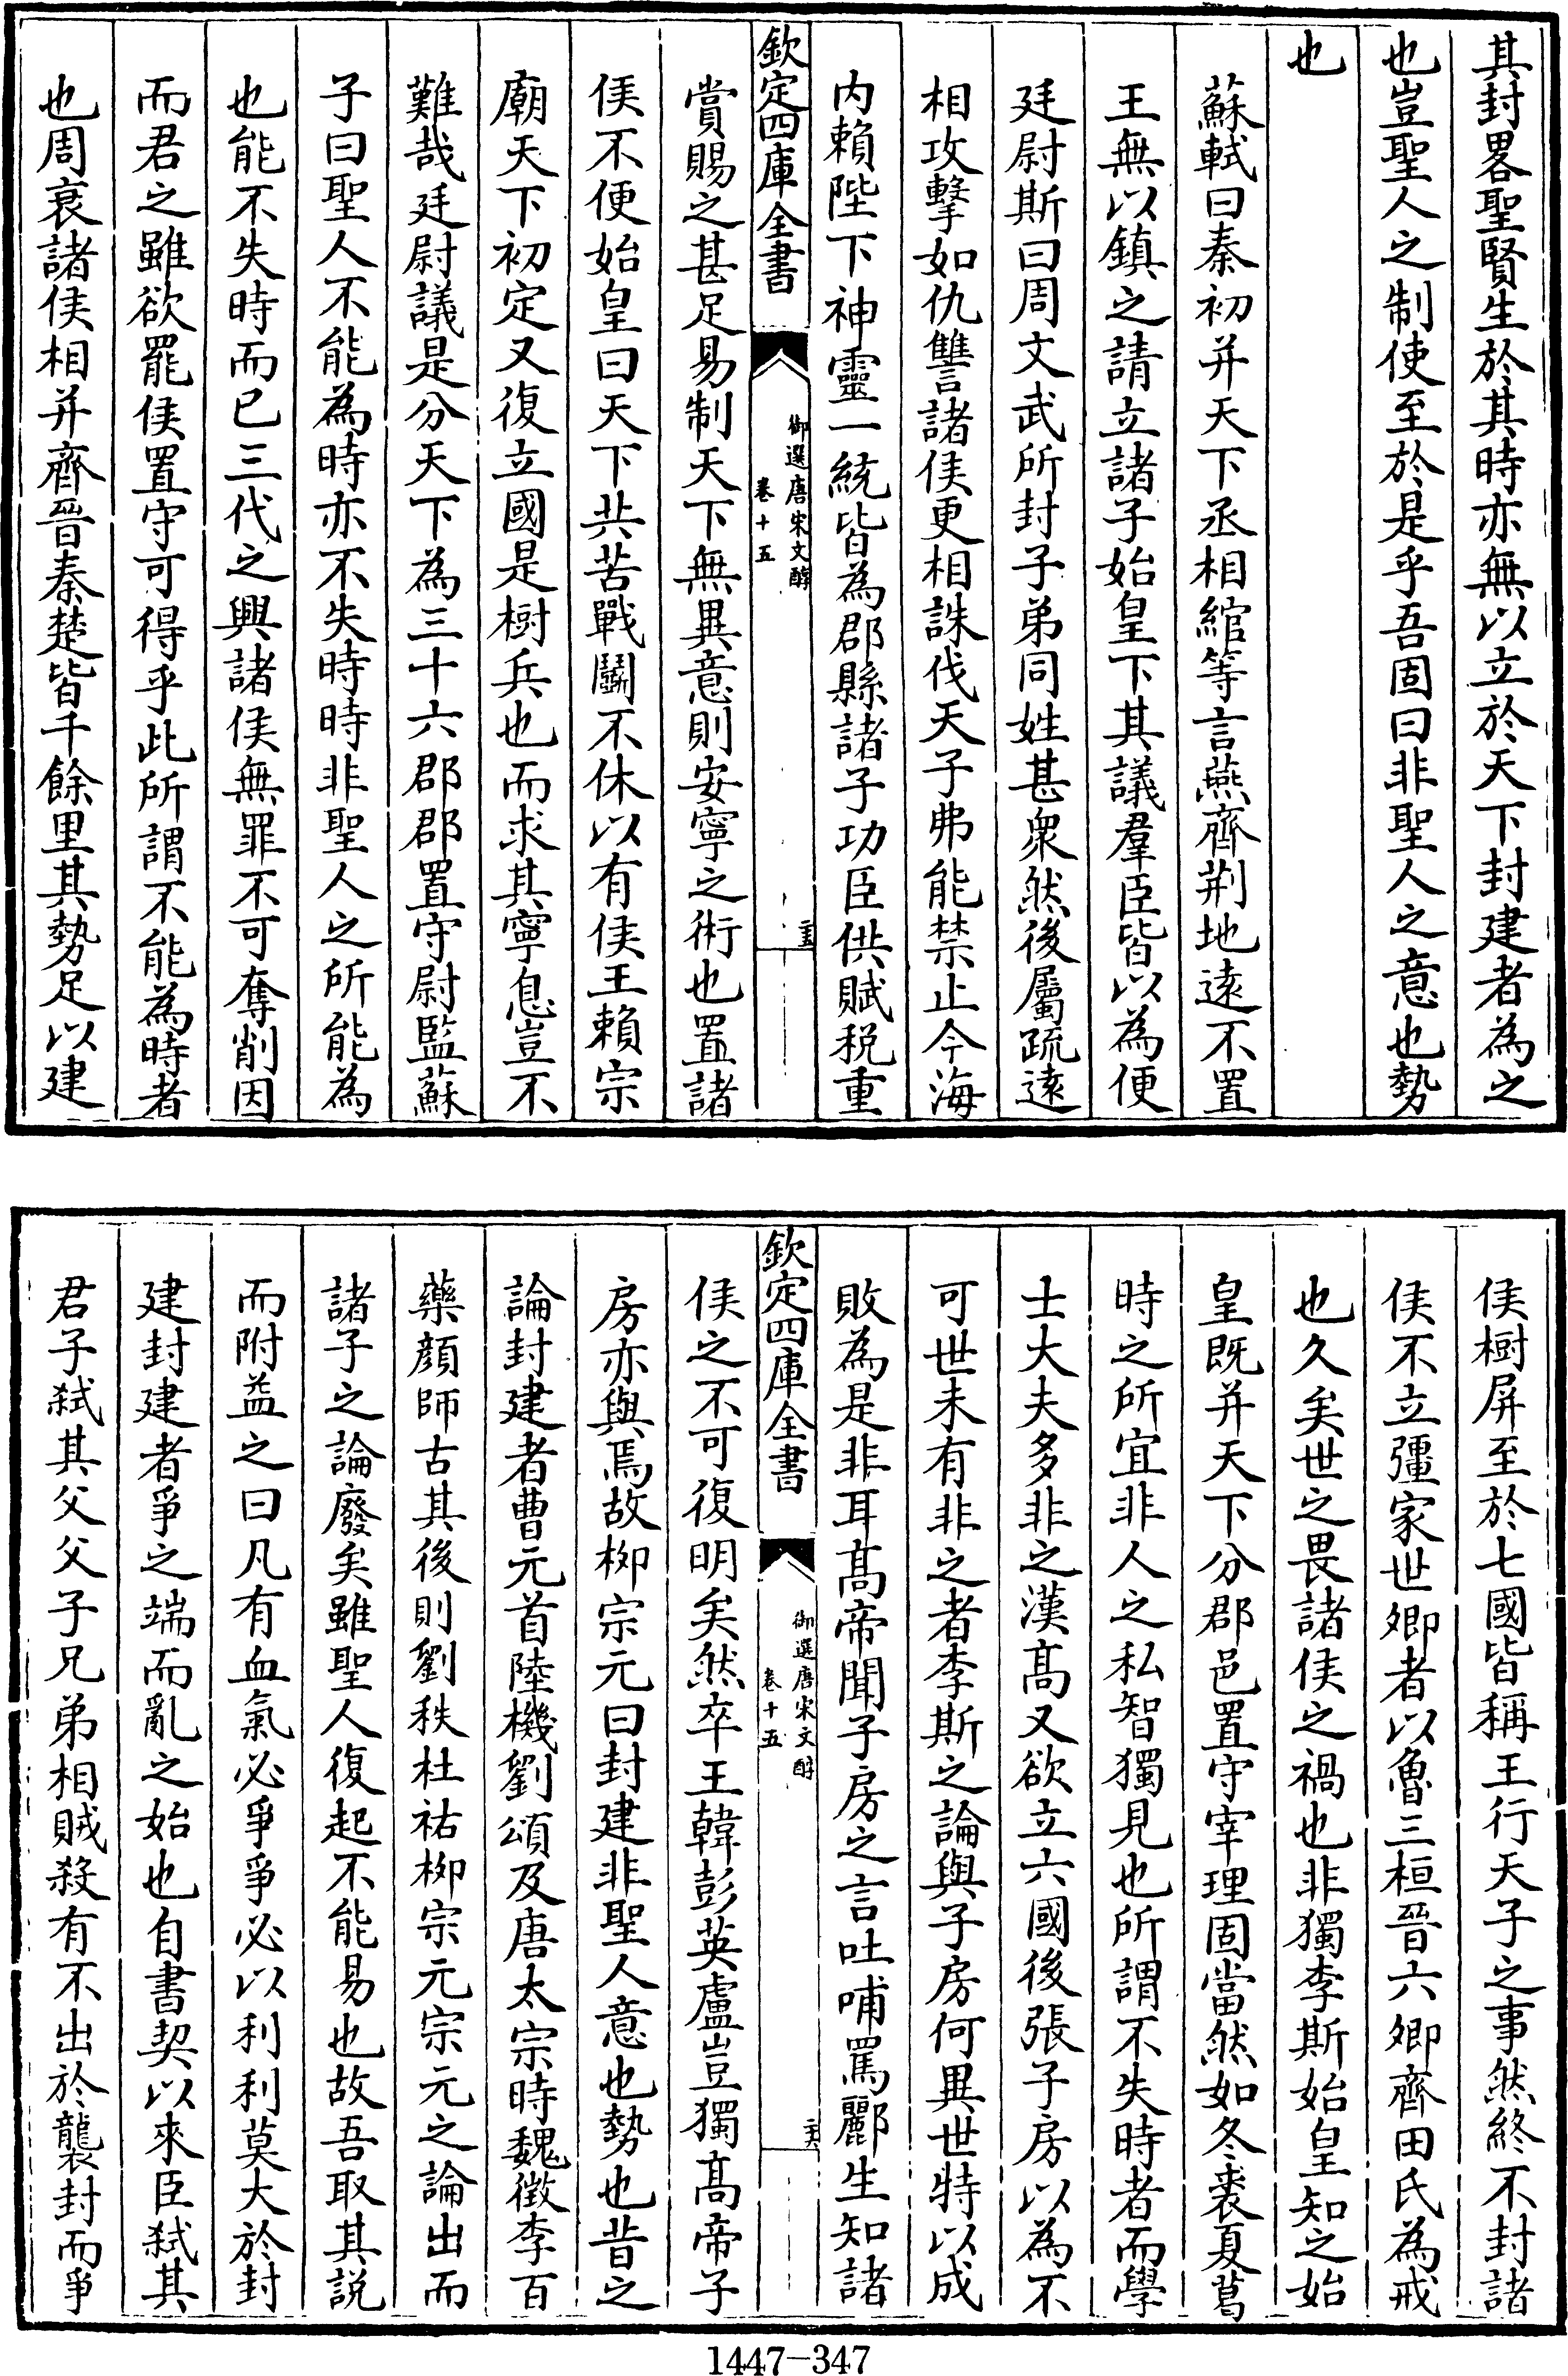 其封畧聖賢生於其時亦無以立於天下封建者為之
也豈聖人之制使至於是乎吾固曰非聖人之意也勢
也
蘇軾曰秦初并天下丞相綰等言燕齊荆地遠不置
王無以鎮之請立諸子始皇下其議羣臣皆以為便
廷尉斯曰周文武所封子弟同姓甚衆然後屬疏遠
相攻擊如仇讐諸侯更相誅伐天子弗能禁止今海
内賴陛下神靈一統皆為郡縣諸子功臣供賦税重
欽定四庫全書
御選唐宋文醇
卷十五
主
賞賜之甚足易制天下無異意則安寧之術也置諸
侯不便始皇曰天下共苦戰鬬不休以有侯王賴宗
廟天下初定又復立國是樹兵也而求其寧息豈不
難哉廷尉議是分天下為三十六郡郡置守尉監蘇
子曰聖人不能為時亦不失時時非聖人之所能為
也能不失時而已三代之興諸侯無罪不可奪削因
而君之雖欲罷侯置守可得乎此所謂不能為時者
也周衰諸侯相并齊晉秦楚皆千餘里其勢足以建
侯樹屏至於七國皆稱王行天子之事然終不封諸
侯不立彊家世卿者以魯三桓晉六卿齊田氏為戒
也久矣世之畏諸侯之禍也非獨李斯始皇知之始
皇既并天下分郡邑置守宰理固當然如冬裘夏葛
時之所宜非人之私智獨見也所謂不失時者而學
士大夫多非之漢髙又欲立六國後張子房以為不
可世未有非之者李斯之論與子房何異世特以成
敗為是非耳髙帝聞子房之言吐哺罵酈生知諸
欽定四庫全書
御選唐宋文醇
卷十五
侯之不可復明矣然卒王韓彭英盧豈獨髙帝子
房亦與焉故柳宗元曰封建非聖人意也勢也昔之
論封建者曹元首陸機劉頌及唐太宗時魏徵李百
藥顔師古其後則劉秩杜祐柳宗元宗元之論出而
諸子之論廢矣雖聖人復起不能易也故吾取其説
而附益之曰凡有血氣必爭爭必以利利莫大於封
建封建者爭之端而亂之始也自書契以來臣弑其
君子弑其父父子兄弟相賊殺有不出於襲封而爭
1447-347